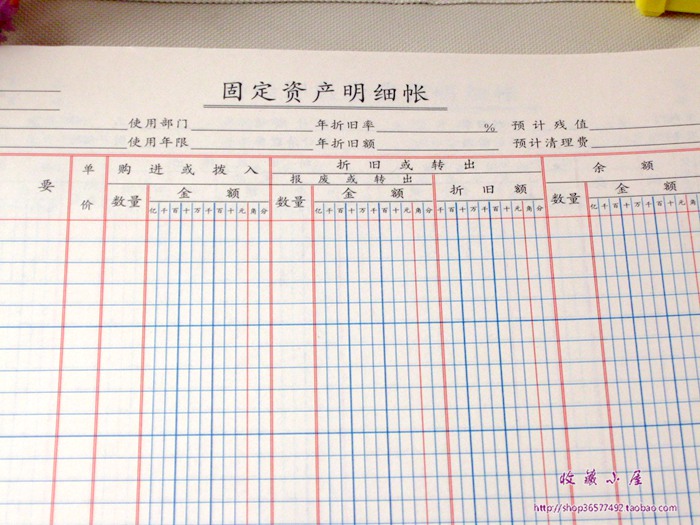 固定资产明细帐
使用部门 年折旧率 % 预计残值
使用年限 年折旧额 预计清理费
要 单价 购进或拨入 折旧或转出 余额
报废或转出
数量 金额 数量 金额 折旧额 数量 金额
亿千百十万千百十元角分 亿千百十万千百十元角分 千百十万千百十元角分 亿千百十万千百十元
收藏小屋
http://shop36577492.taobao.com